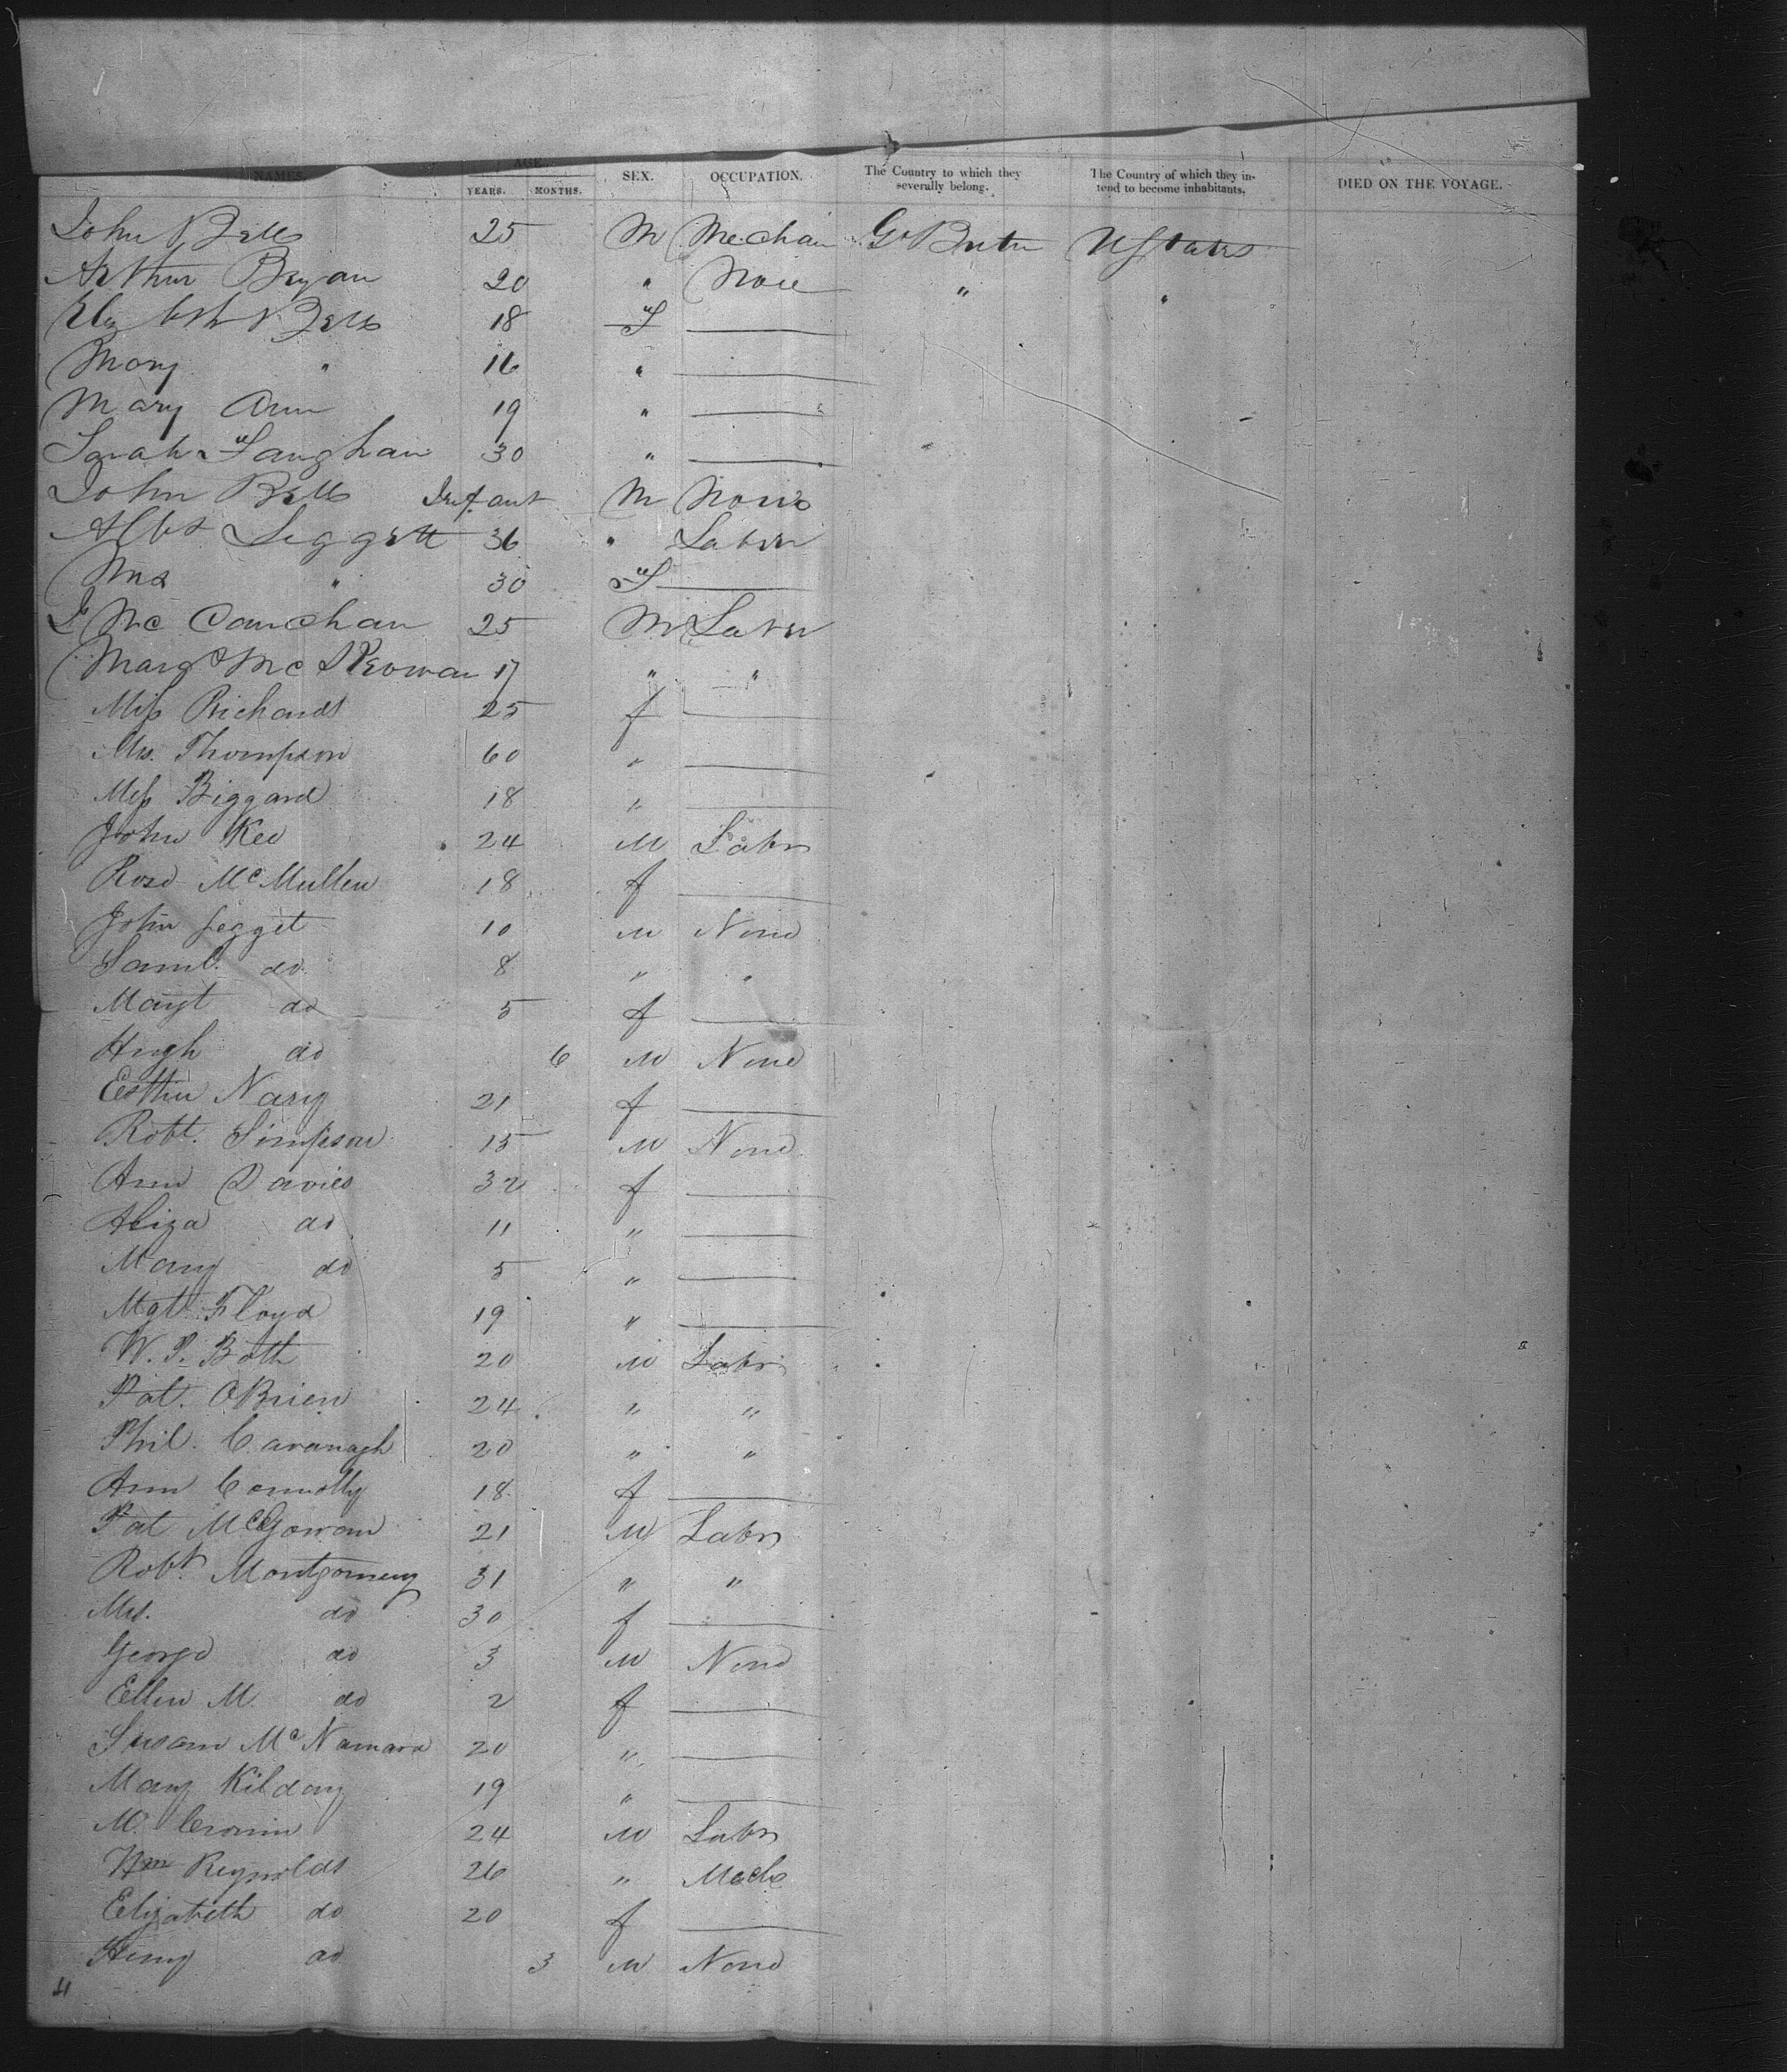 NAMES. AGE. SEX. OCCUPATION. The Country to which they severally belong. The Country of which they intend to become inhabitants. DIED ON THE VOYAGE.
YEARS. MONTHS.
John Bells 25 M Mechan Gt Britn U States
Arthur Bryan 20 " None " "
Eliz bth Bells 18 F
Mary " 16 "
Mary Ann 19 "
Sarah Faughan 30 "
John Bells Infant M None
Albt Leggett 36 " Labrr
Mrs " 30 F
Mc Canchan 25 M Labrr
Margt Mc 17 " "
Miss Richards 25 f
Mrs. Thompson 60 "
Miss Biggard 18 "
John Kee 24 M Labr
Rose McMullen 18 f
John Legget 10 M None
Saml. do 8 " "
Margt do 5 f
Hugh do 6 M None
Esther Nary 21 f
Robt. Simpson 15 M None
Ann Davies 32 f
Eliza do 11 "
Mary do 5 "
Mgt Floyd 19 "
W. P. Bath 20 M Labr
Pat. OBrien 24 " "
Phil. Cavanagh 20 " "
Ann Connolly 18 f
Pat McGowan 21 M Labr
Robt. Montgomery 31 " "
Mrs. do 30 f
George do 3 M None
Ellen M. do 2 f
Susan McNamara 20 "
Mary Kilday 19 "
M. Cronin 24 M Labr
Wm Reynolds 26 " Mech
Elizabeth do 20 f
Henry do 3 M None